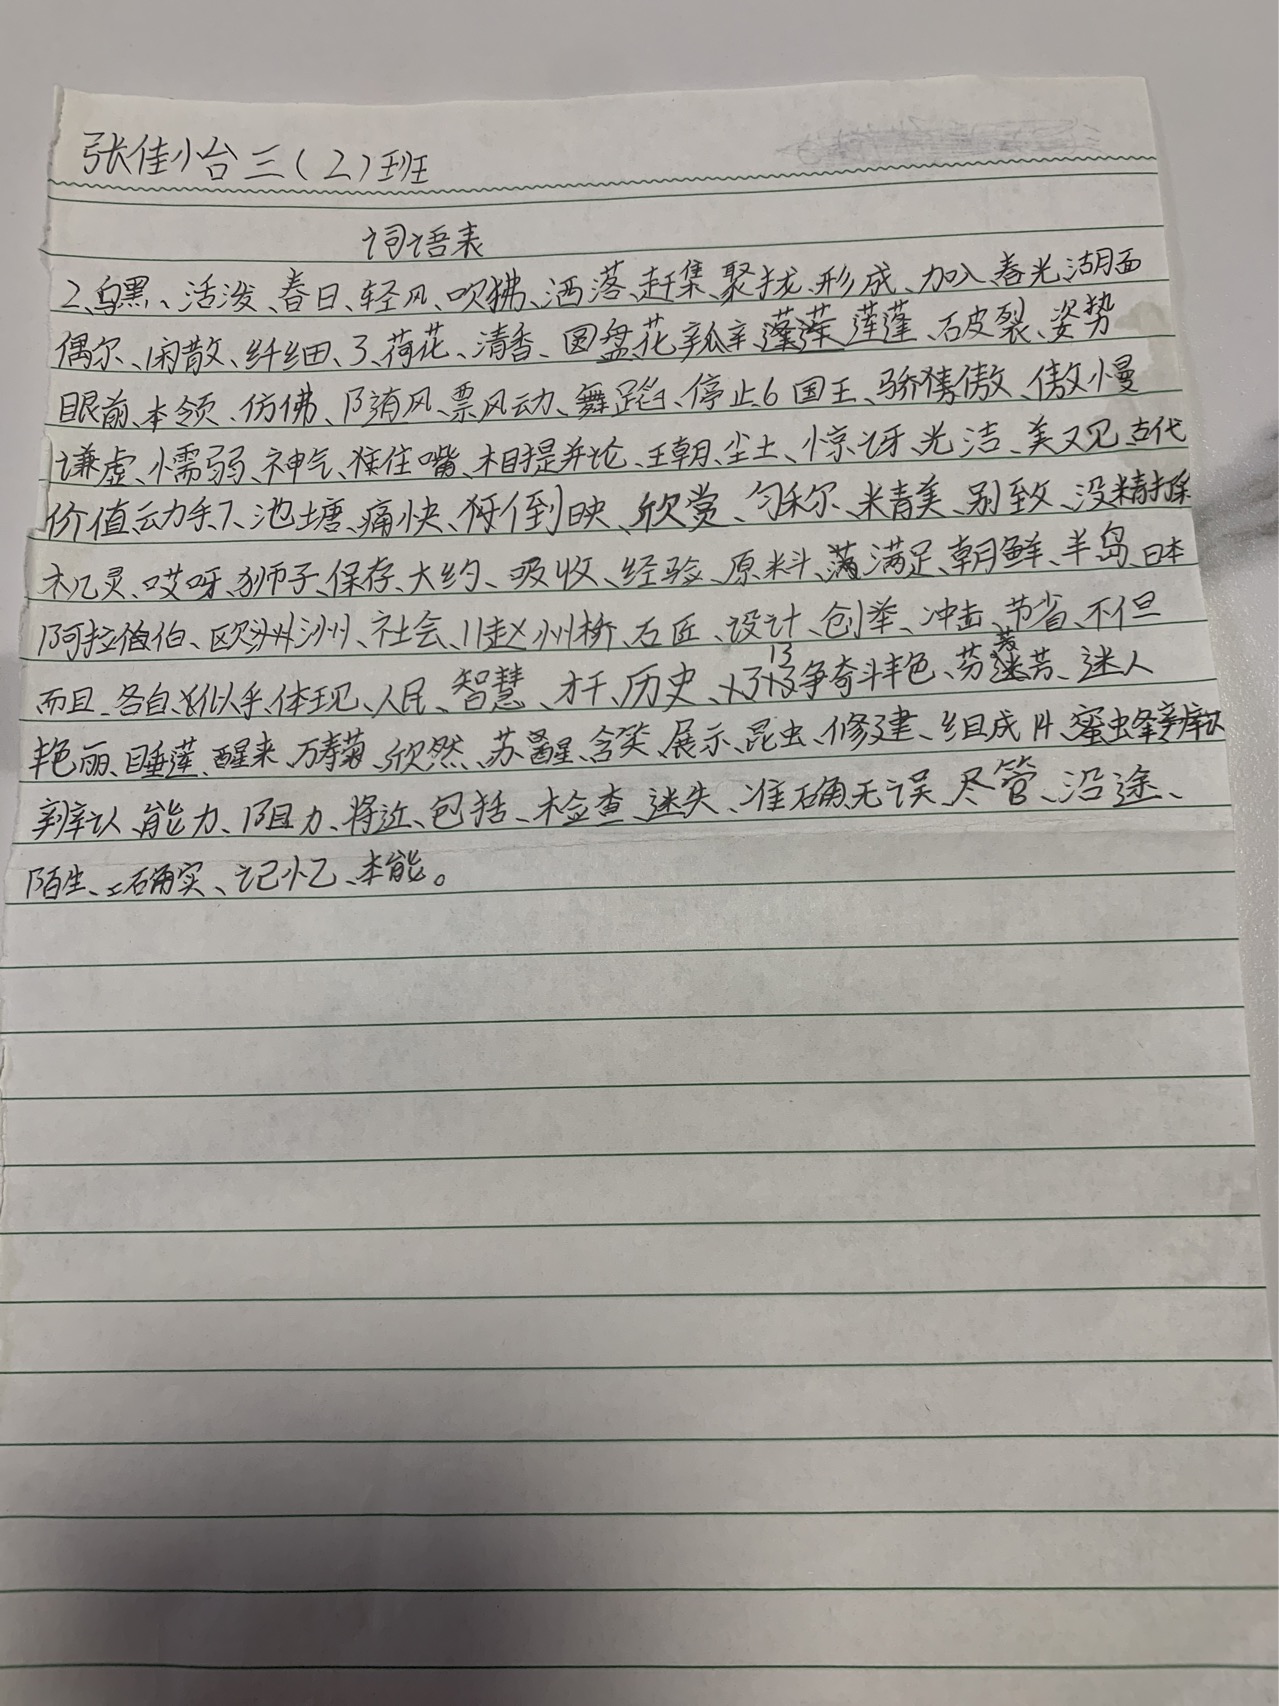 张佳怡三(2)班
词语表
2、乌黑、活泼、春日、轻风、吹拂、洒落、赶集、聚拢、形成、加入、春光湖面
偶尔、闲散、纤细、3、荷花、清香、圆盘花瓣、莲蓬、破裂、姿势
眼前、本领、仿佛、随风、飘动、舞蹈、停止、6国王、骄傲、傲慢
谦虚、懦弱、神气、嘴、相提并论、王朝、尘土、惊讶、光洁、美观古代
价值、动手、7、池塘、痛快、倒映、欣赏、匀称、精美、别致、没精打采
机灵、哎呀、狮子、保存、大约、吸收、经验、原料、满足、朝鲜、半岛、日本
阿拉伯、欧洲、社会、11赵州桥、石匠、设计、创举、冲击、节省、不但
而且、各自、似乎、体现、人民、智慧、才干、历史、13争奇斗艳、芬芳、迷人
艳丽、睡莲、醒来、万寿菊、欣然、苏醒、含笑、展示、昆虫、修建、组成14、蜜蜂
辨认、能力、阻力、将近、包括、检查、迷失、准确无误、尽管、沿途、
陌生、确实、记忆、本能。